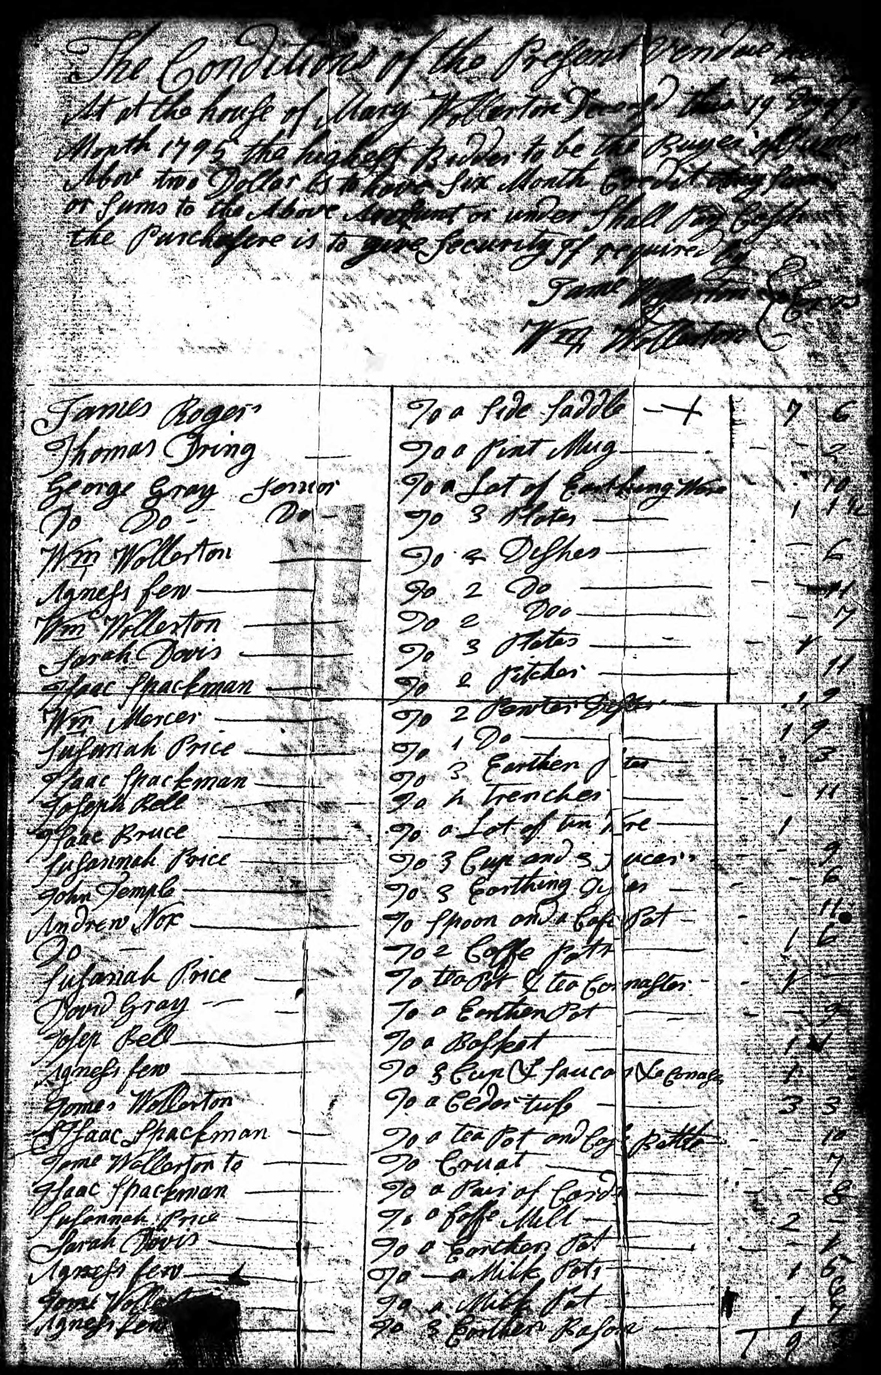 The Conditions of the Present Vendue
At at the house of Mary Wollerton Deceasd this 19 Day of
Month 1795 the highest Bidder to be the Buyer
Above two Dollar is to have Six Month Credit any Sum
or Sums to the Above Amount or under Shall Pay Cash
the Purchesere is to give Security if required by
Jame Wollerton
Wm Wollerton
James Rogers To a Side Saddle 7 6
Thomas Dring To a Pint Mug - 2
George Gray Senior To a Lot of Earthing Were - 10
Do Do - Do - To 3 Plates 1
Wm Wollerton To 2 Dishes - 6
Agness few To 2 Do - 11
Wm Wollerton To 2 Doo - 7
Sarah Davis To 3 Plates 1 -
Isaac Spackman To 2 Pitcher 11
Wm Mercer To 2 Pewter 1 9
Susanah Price To 1 Do 1 9
Isaac Spackman To 3 Earthen 3
Joseph Bell To 4 Trencher - 11
Isaac Bruce To a Lot of tin 1
Susannah Price To 3 Cup and 3 9
John Temple To 3 Earthing 6
Andrew Nox To Spoon and a Cofe Pot - 11
Do - To 2 Coffe Pots 1 6
Susanah Price To tea Pot & tea 1 -
David Gray To a Earthen Pot
Josep Bell To a Basket 1
Agness few To 3 Cup & Saucer & 1
James Wollerton To a Ceder tub 3 3
Isaac Spackman To a tea Pot and Bottle 10
Jame Wollerton to To Cruat 7
Isaac Spackman To a Pair of Cards 8
Susannah Price To a Coffe Mill 2 -
Sarah Davis To a Earthen Pot - 1
Agness few To - a Milk Pots 1 5
Jame To a Milk Pot
Agness few To 3 Earthen Bason 1